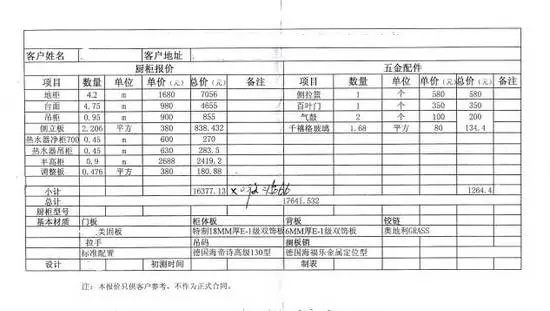 客户姓名 客户地址
厨柜报价 五金配件
项目 数量 单位 单价(元) 总价(元) 备注 项目 数量 单位 单价(元) 总价(元) 备注
地柜 4.2 m 1680 7056 侧拉篮 1 个 580 580
台面 4.75 m 980 4655 百叶门 1 个 350 350
吊柜 0.95 m 900 855 气鼓 2 个 100 200
侧立板 2.206 平方 380 838.432 千禧格玻璃 1.68 平方 80 134.4
热水器净柜700 0.45 m 600 270
热水器吊柜 0.45 m 630 283.5
半高柜 0.9 m 2688 2419.2
调整板 0.476 平方 380 180.88
小计 16377.13 1264.4
总计 17641.532
厨柜型号
基本材质 门板 柜体板 背板 铰链
美因板 特制18MM厚E-1级双饰板 6MM厚E-1级双饰板 奥地利GRASS
拉手 吊码 搁板销
标准配置 德国海帝诗高级130型 德国海福乐金属定位型
设计 初测时间 制表
注: 本报价只供客户参考, 不作为正式合同。